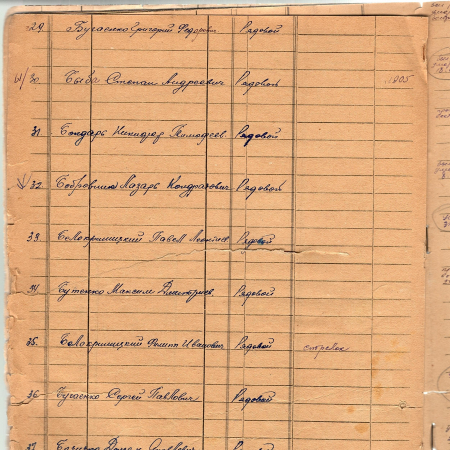 29. Бугаенко Григорий Федоров. Рядовой
30. Быва Степан Андреевич Рядовой 1905
31 Бондарь Никифор Тимофеев. Рядовой
32. Бобровник Лазарь Кондратович Рядовой
33. Белокриницкий Павел Леонтиев. Рядовой
34. Бутенко Максим Дмитриев. Рядовой
35. Белокриницкий Филипп Иванович Рядовой стрелок
36 Бугаенко Сергей Павлович Рядовой
37.